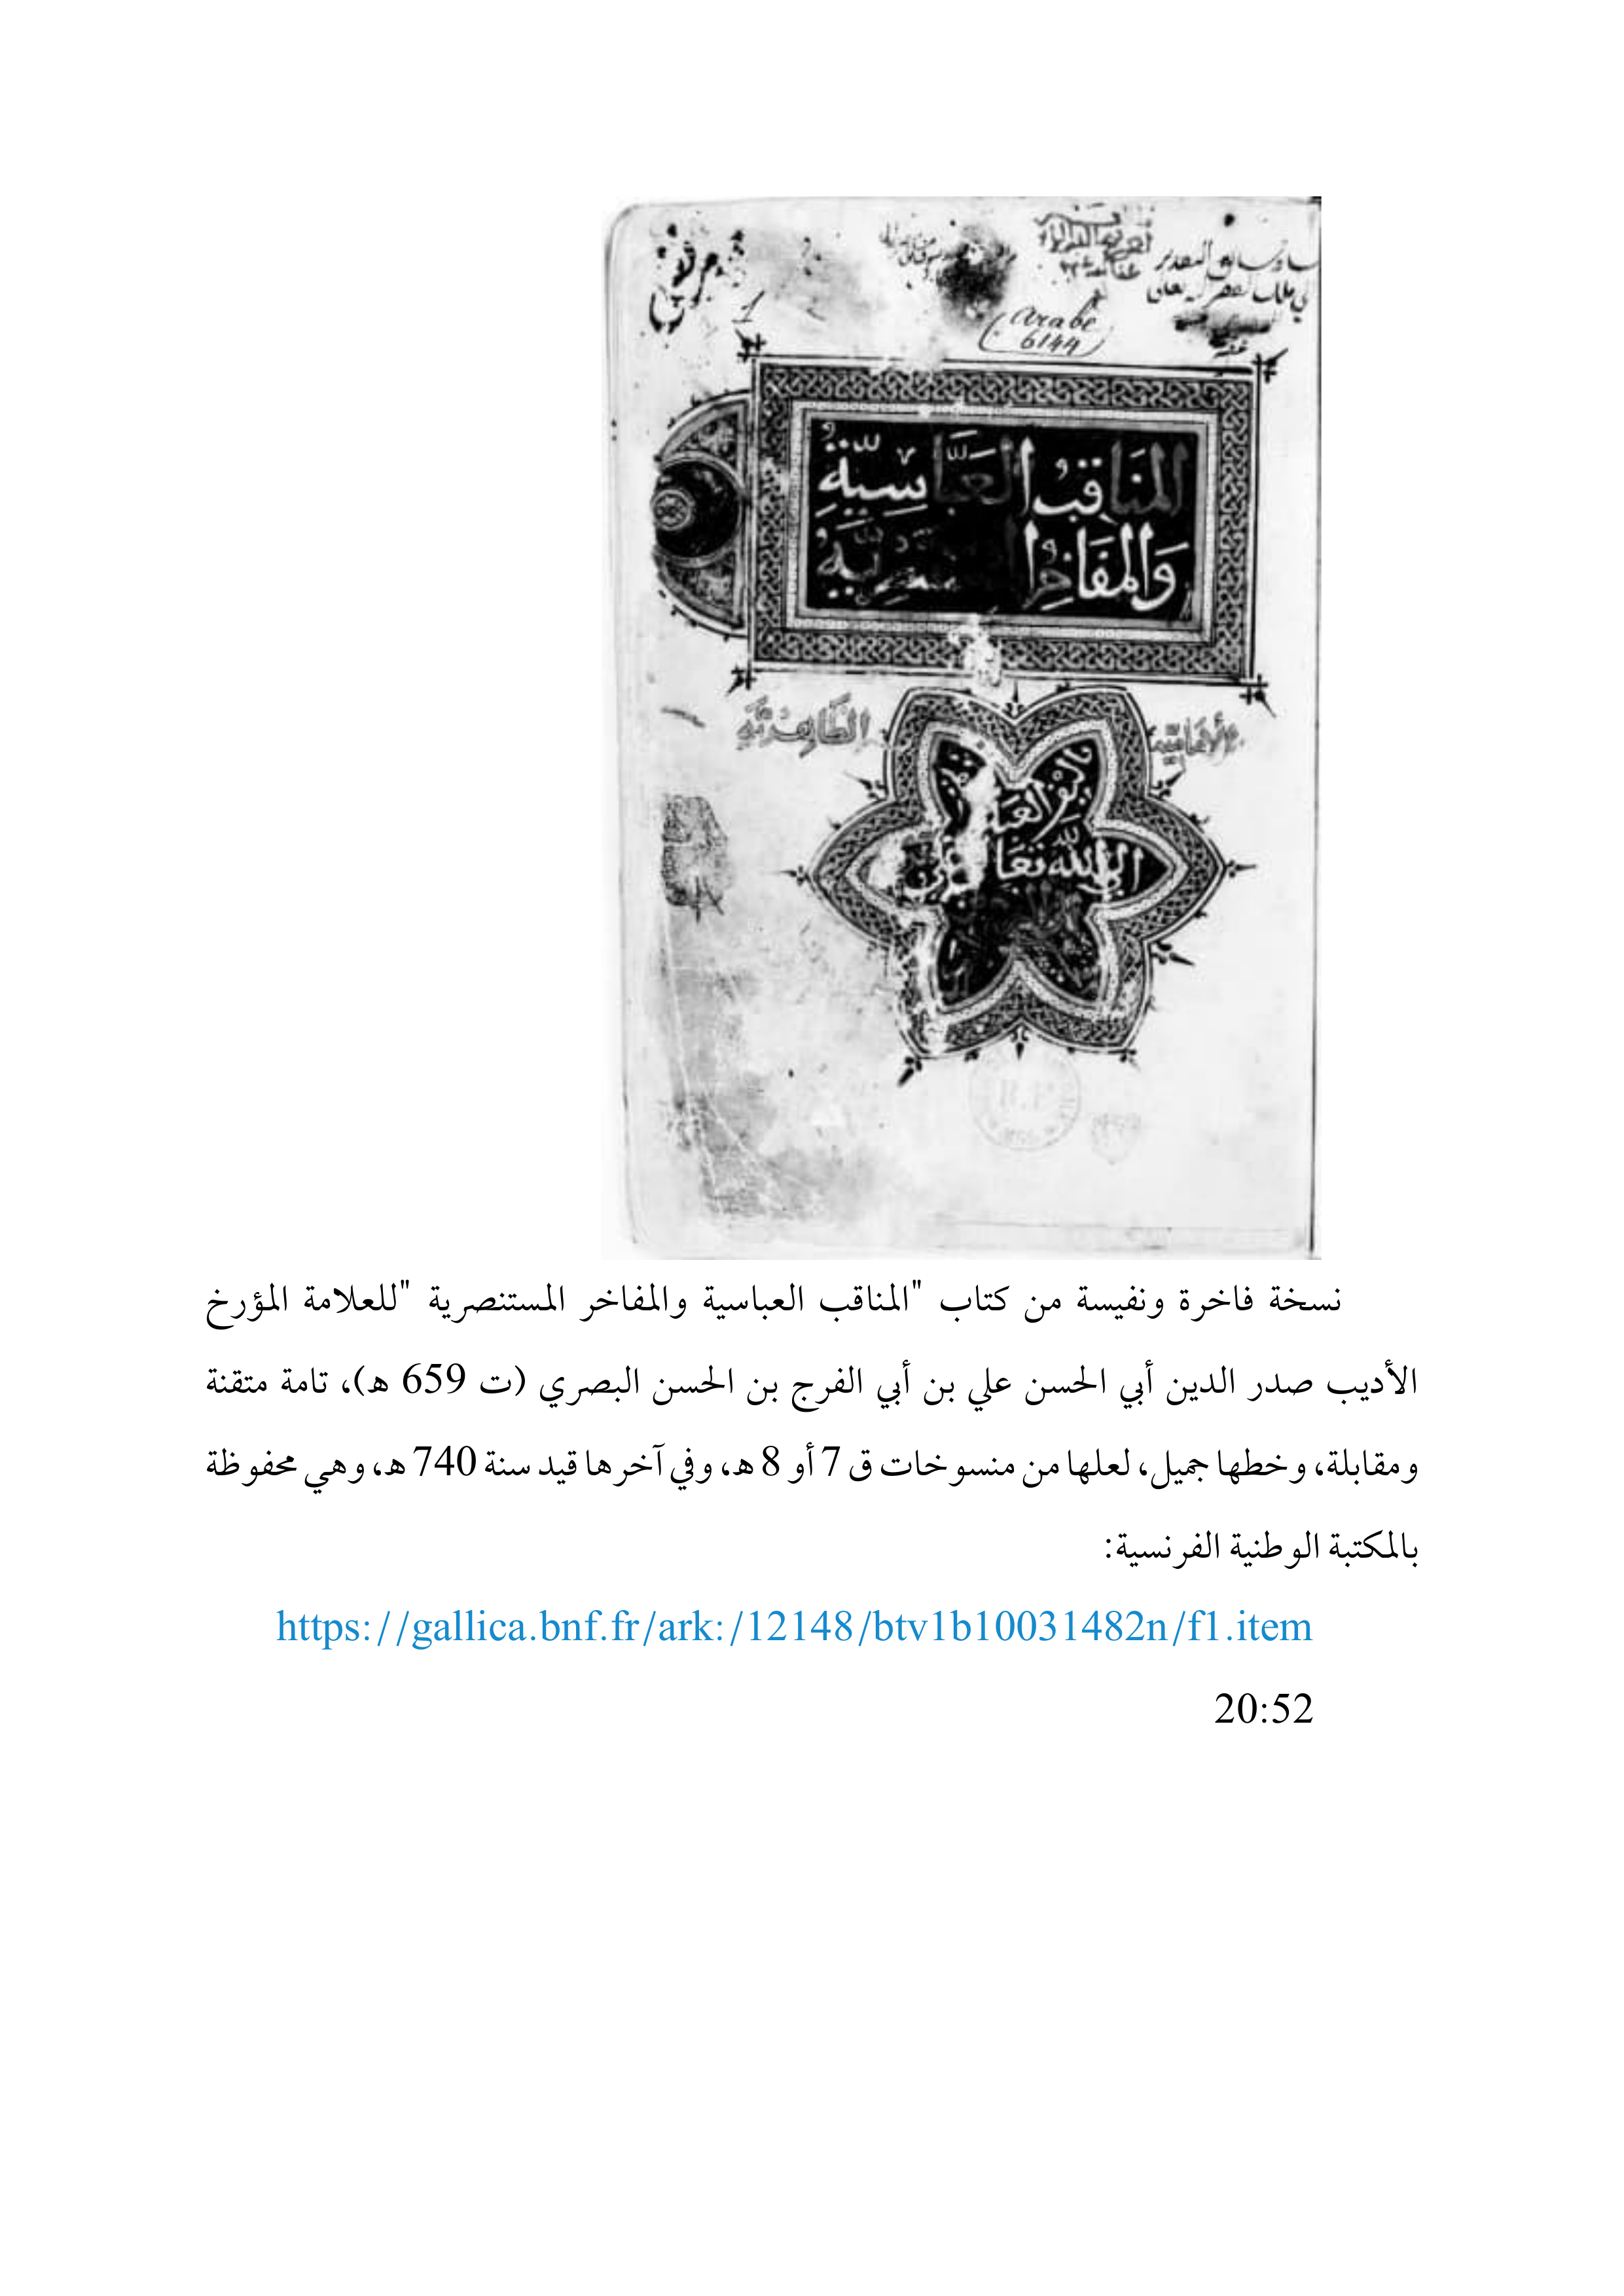 1
Arabe
6144
المناقب العباسية
والمفاخر
العبد
الى الله تعالى
نسخة فاخرة ونفيسة من كتاب "المناقب العباسية والمفاخر المستنصرية "للعلامة المؤرخ
الأديب صدر الدين أبي الحسن علي بن أبي الفرج بن الحسن البصري (ت 659 ه)، تامة متقنة
ومقابلة، وخطها جميل، لعلها من منسوخات ق 7 أو 8 ه، وفي آخرها قيد سنة 740 ه، وهي محفوظة
بالمكتبة الوطنية الفرنسية:
https://gallica.bnf.fr/ark:/12148/btv1b10031482n/f1.item
20:52